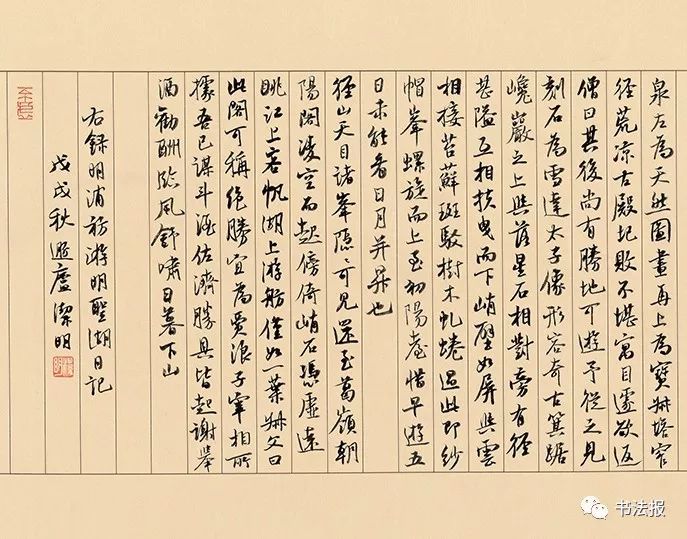 泉左為天然圖畫再上為寶叔塔窄
徑荒凉古殿圮敗不堪寓目遽欲返
僧曰其後尚有勝地可遊予從之見
刻石為雪達太子像形容奇古箕踞
巉巖之上與落星石相對旁有徑
甚隘互相扶曳而下峭壁如屏與雲
相接苔蘚斑駁樹木虬蜷過此即紗
帽峯螺旋而上至初陽臺惜早遊五
日未能看日月并昇也
徑山天目諸峯隱〻可見還至葛嶺朝
陽閣凌空而起傍倚峭石憑虛遠
眺江上客帆湖上游舫僅如一葉叔父曰
此閣可稱絕勝宜為賈浪子宰相所
據吾已謀斗酒佐濟勝具皆起謝舉
酒勸酬臨風舒嘯日暮下山
右錄明浦祊游明聖湖日記
戊戌秋遯廬潔明
书法报